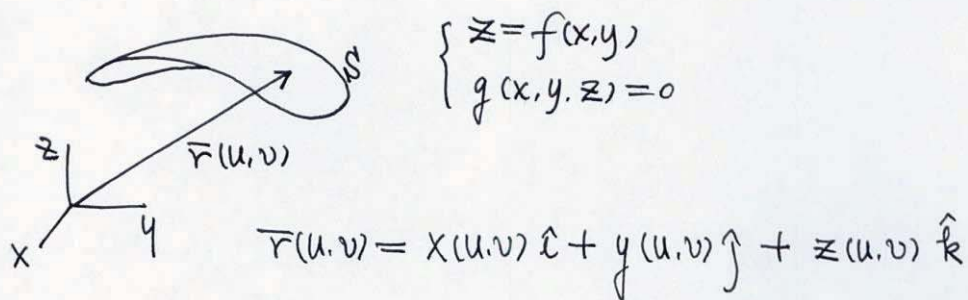 z = f(x,y)
g(x,y.z) = 0
S
r̅(u,v)
z
y
x
r̅(u.v) = x(u.v) î + y(u.v) ĵ + z(u.v) k̂